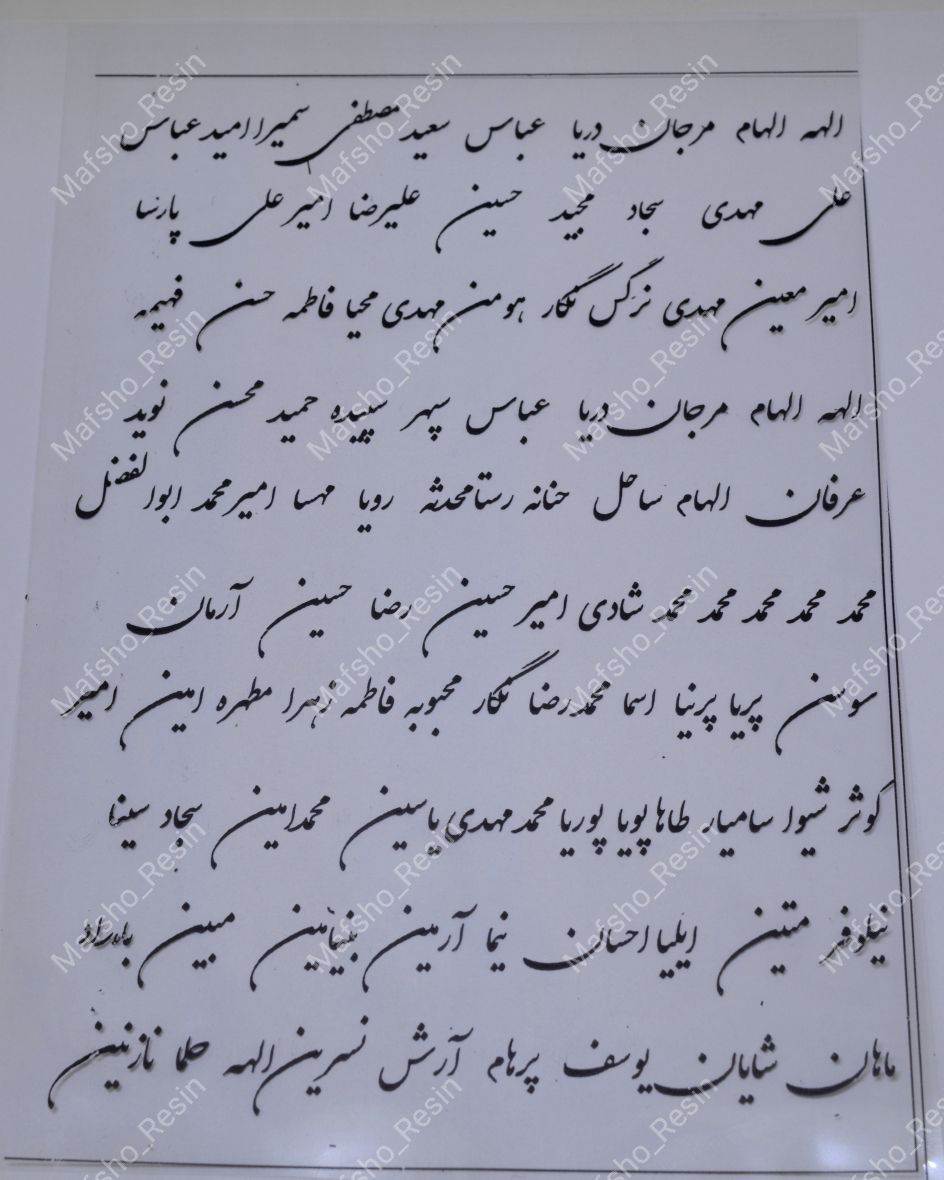 الهه الهام مرجان دریا عباس سعید مصطفی سمیرا امید عباس
علی مهدی سجاد مجید حسین علیرضا امیر علی پارسا
امیر معین مهدی نرگس نگار هومن مهدی محیا فاطمه حسن فهیمه
الهه الهام مرجان دریا عباس سپهر سپیده حمید محسن نوید
عرفان الهام ساحل حنانه رستا محدثه رویا مهسا امیر محمد ابوالفضل
محمد محمد محمد محمد محمد شادی امیر حسین رضا حسین آرمان
سوسن پریا پرنیا اسما محمدرضا نگار محبوبه فاطمه زهرا مطهره امین امیر
کوثر شیوا سامیار طاها پویا پوریا محمد مهدی یاسین محمدامین سجاد سینا
نیلوفر متین ایلیا احسان نیما آرمین بنیامین مبین
ماهان شایان یوسف پرهام آرش نسرین الهه حلما نازنین
Mafsho_Resin